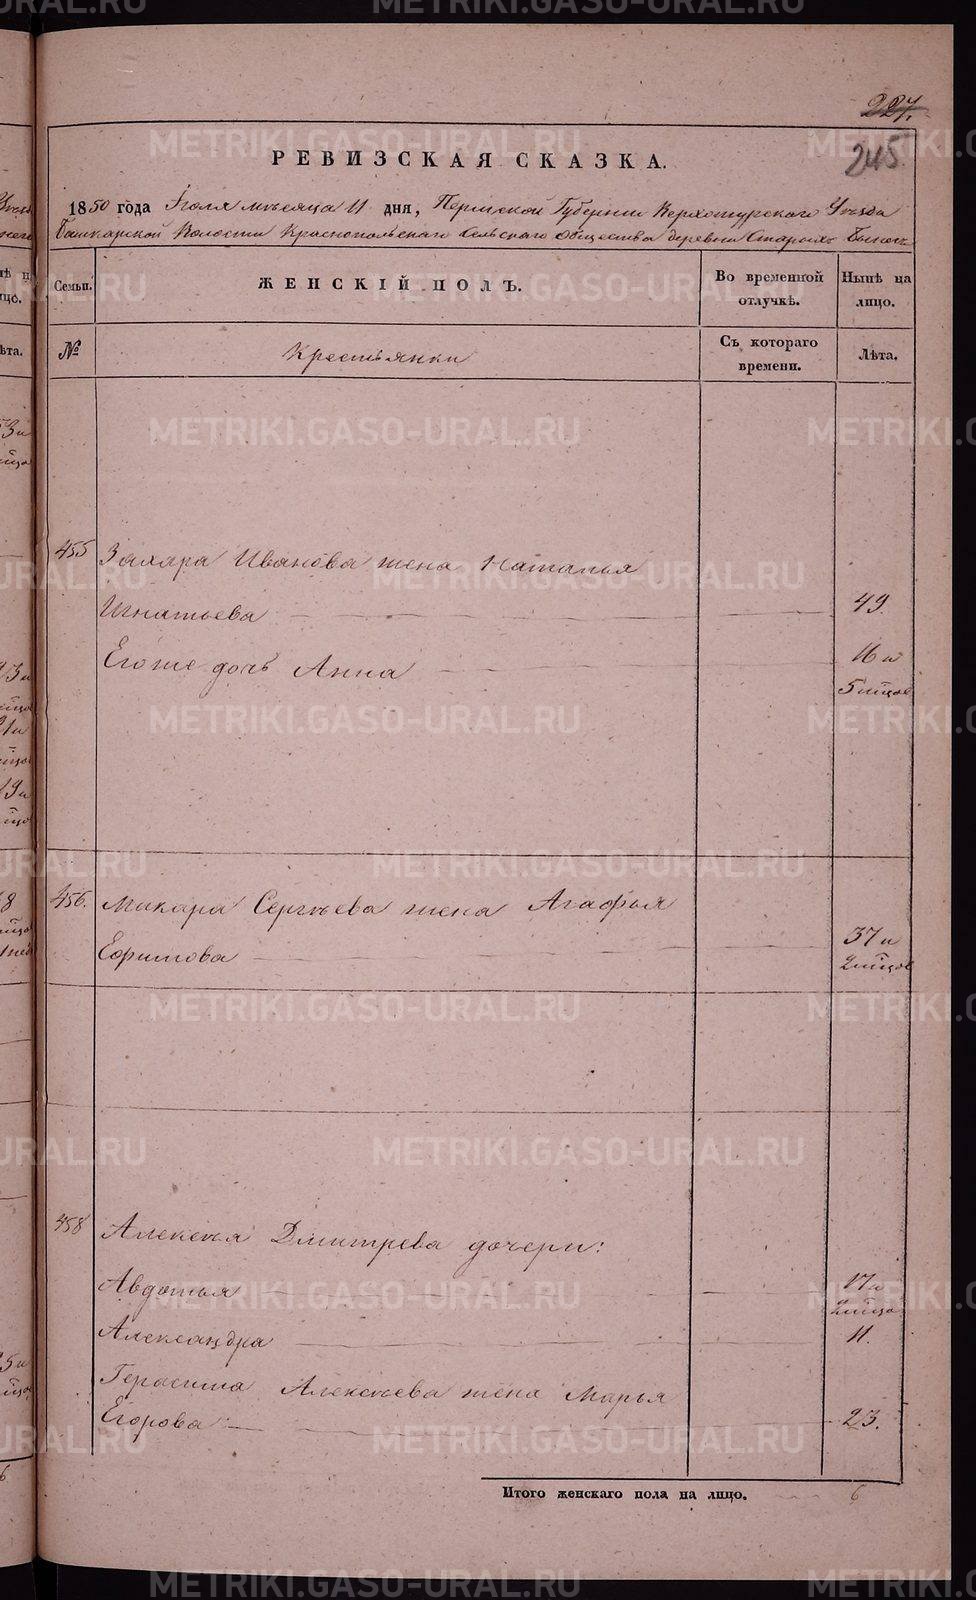 227.
245
РЕВИЗСКАЯ СКАЗКА.
1850 года Іюля мѣсяца 11 дня, Пермской Губерніи Верхотурскаго Уѣзда
Башкарской Волости Краснопольскаго Сельскаго Общества деревни Старыхъ
Семьи.
ЖЕНСКІЙ ПОЛЪ.
Во временной отлучкѣ.
Нынѣ на лицо.
№
Крестьянки
Съ котораго времени.
Лѣта.
455 Захара Иванова жена Наталья
Игнатьева 49.
Его же дочь Анна 16 и
5 мѣцов
456. Макара Сергѣева жена Агафья
Ефимова 37 и
2 мѣцов
458 Алексѣя Дмитрева дочери:
Авдотья 17 и
2 мѣцо
Александра 11.
Герасима Алексѣева жена Марья
Егорова 23.
Итого женскаго пола на лицо. 6
METRIKI.GASO-URAL.RU